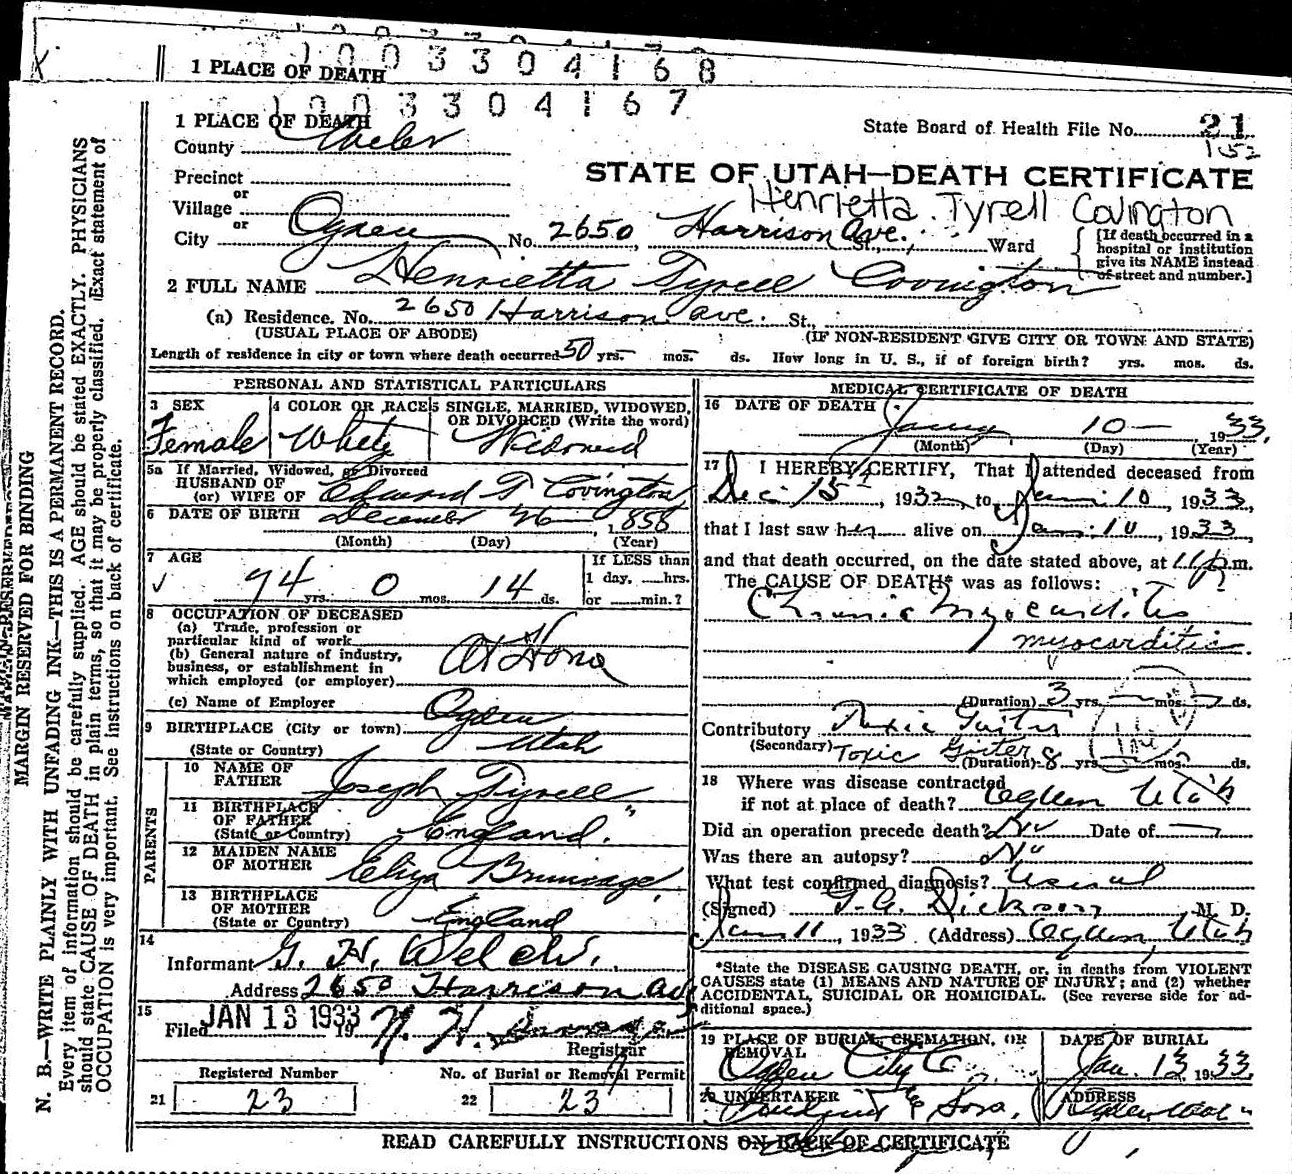 1003304168
1 PLACE OF DEATH
1003304167
1 PLACE OF DEATH
County Weber
State Board of Health File No. 21
152
Precinct
or
STATE OF UTAH—DEATH CERTIFICATE
Village
or
Henrietta Tyrell Covington
City Ogden No. 2650 Harrison Ave. St., Ward
[If death occurred in a hospital or institution give its NAME instead of street and number.]
2 FULL NAME Henrietta Tyrell Covington
(a) Residence. No. 2650 Harrison ave. St.,
(USUAL PLACE OF ABODE) (IF NON-RESIDENT GIVE CITY OR TOWN AND STATE)
Length of residence in city or town where death occurred 50 yrs. mos. ds. How long in U. S., if of foreign birth? yrs. mos. ds.
PERSONAL AND STATISTICAL PARTICULARS
3 SEX 4 COLOR OR RACE 5 SINGLE, MARRIED, WIDOWED, OR DIVORCED (Write the word)
Female White Widowed
5a If Married, Widowed, or Divorced
HUSBAND OF
(or) WIFE OF Edward T Covington
6 DATE OF BIRTH December 26 1858
(Month) (Day) (Year)
7 AGE If LESS than
74 yrs. 0 mos. 14 ds. 1 day, hrs.
or min.?
8 OCCUPATION OF DECEASED
(a) Trade, profession or
particular kind of work
(b) General nature of industry,
business, or establishment in
which employed (or employer) At Home
(c) Name of Employer
9 BIRTHPLACE (City or town) Ogden
(State or Country) Utah
PARENTS
10 NAME OF FATHER Joseph Tyrell
11 BIRTHPLACE OF FATHER
(State or Country) England.
12 MAIDEN NAME OF MOTHER Eliza
13 BIRTHPLACE OF MOTHER
(State or Country) England
14
Informant G. H. Welch.
Address 2650 Harrison Av
15
Filed JAN 13 1933 19
Registrar
Registered Number No. of Burial or Removal Permit
21 23 22 23
MEDICAL CERTIFICATE OF DEATH
16 DATE OF DEATH
10 1933.
(Month) (Day) (Year)
17 I HEREBY CERTIFY, That I attended deceased from
Dec 15, 1932, to Jan 10, 1933,
that I last saw her alive on Jan 10, 1933,
and that death occurred, on the date stated above, at 11 p.m.
The CAUSE OF DEATH* was as follows:
Chronic Myocarditis
myocarditic.
(Duration) 3 yrs. mos. ds.
Contributory Toxic Goiter
(Secondary) Toxic Goiter
(Duration) 8 yrs. mos. ds.
18 Where was disease contracted
if not at place of death? Ogden Utah
Did an operation precede death? No Date of
Was there an autopsy? No
What test confirmed diagnosis? Usual
(Signed) Dickson M. D.
Jan 11, 1933 (Address) Ogden, Utah
*State the DISEASE CAUSING DEATH, or, in deaths from VIOLENT
CAUSES state (1) MEANS AND NATURE OF INJURY; and (2) whether
ACCIDENTAL, SUICIDAL OR HOMICIDAL. (See reverse side for ad-
ditional space.)
19 PLACE OF BURIAL, CREMATION, OR REMOVAL DATE OF BURIAL
Ogden City Jan. 13 1933.
20 UNDERTAKER ADDRESS
& Sons. Ogden Utah
READ CAREFULLY INSTRUCTIONS ON BACK OF CERTIFICATE
MARGIN RESERVED FOR BINDING
N. B.—WRITE PLAINLY WITH UNFADING INK—THIS IS A PERMANENT RECORD.
Every item of information should be carefully supplied. AGE should be stated EXACTLY. PHYSICIANS
should state CAUSE OF DEATH in plain terms, so that it may be properly classified. Exact statement of
OCCUPATION is very important. See instructions on back of certificate.